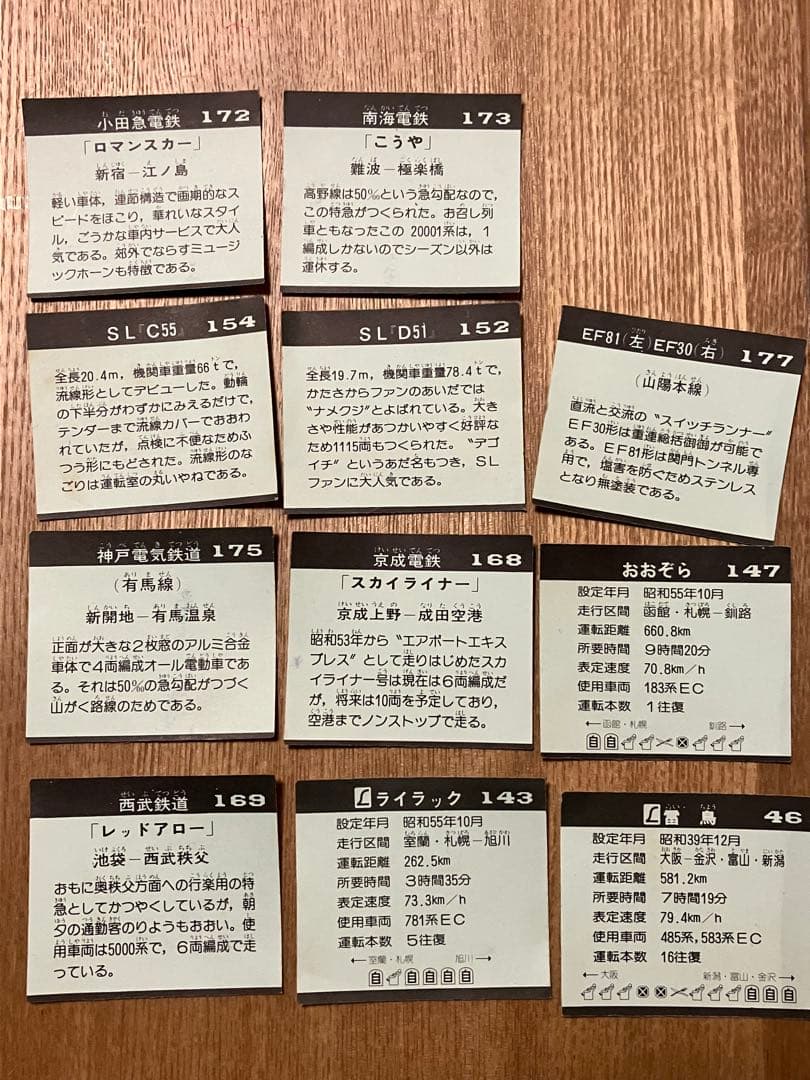 小田急電鉄 172
「ロマンスカー」
新宿－江ノ島
軽い車体，連節構造で画期的なス
ピードをほこり，華れいなスタイ
ル，ごうかな車内サービスで大人
気である。郊外でならすミュージ
ックホーンも特徴である。
南海電鉄 173
「こうや」
難波－極楽橋
高野線は50‰という急勾配なので，
この特急がつくられた。お召し列
車ともなったこの 20001系は，1
編成しかないのでシーズン以外は
運休する。
SL『C55』 154
全長20.4m，機関車重量66tで，
流線形としてデビューした。動輪
の下半分がわずかにみえるだけで，
テンダーまで流線カバーでおおわ
れていたが，点検に不便なためふ
つう形にもどされた。流線形のな
ごりは運転室の丸いやねである。
SL『D51』 152
全長19.7m，機関車重量78.4tで，
かたさからファンのあいだでは
〝ナメクジ〟とよばれている。大き
さや性能があつかいやすく好評な
ため1115両もつくられた。〝デゴ
イチ〟というあだ名もつき，SL
ファンに大人気である。
EF81(左)EF30(右) 177
(山陽本線)
直流と交流の〝スイッチランナー〟
EF30形は重連総括御御が可能で
ある。EF81形は関門トンネル専
用で，塩害を防ぐためステンレス
となり無塗装である。
神戸電気鉄道 175
(有馬線)
新開地－有馬温泉
正面が大きな2枚窓のアルミ合金
車体で4両編成オール電動車であ
る。それは50‰の急勾配がつづく
山がく路線のためである。
京成電鉄 168
「スカイライナー」
京成上野－成田空港
昭和53年から〝エアポートエキス
プレス〟として走りはじめたスカ
イライナー号は現在は6両編成だ
が，将来は10両を予定しており，
空港までノンストップで走る。
おおぞら 147
設定年月 昭和55年10月
走行区間 函館・札幌－釧路
運転距離 660.8km
所要時間 9時間20分
表定速度 70.8km/h
使用車両 183系EC
運転本数 1往復
←函館・札幌 釧路→
自自
西武鉄道 169
「レッドアロー」
池袋－西武秩父
おもに奥秩父方面への行楽用の特
急としてかつやくしているが，朝
夕の通勤客のりようもおおい。使
用車両は5000系で，6両編成で走
っている。
Lライラック 143
設定年月 昭和55年10月
走行区間 室蘭・札幌－旭川
運転距離 262.5km
所要時間 3時間35分
表定速度 73.3km/h
使用車両 781系EC
運転本数 5往復
←室蘭・札幌 旭川→
自 自自自自
L雷鳥 46
設定年月 昭和39年12月
走行区間 大阪－金沢・富山・新潟
運転距離 581.2km
所要時間 7時間19分
表定速度 79.4km/h
使用車両 485系,583系EC
運転本数 16往復
←大阪 新潟・富山・金沢→
自自自